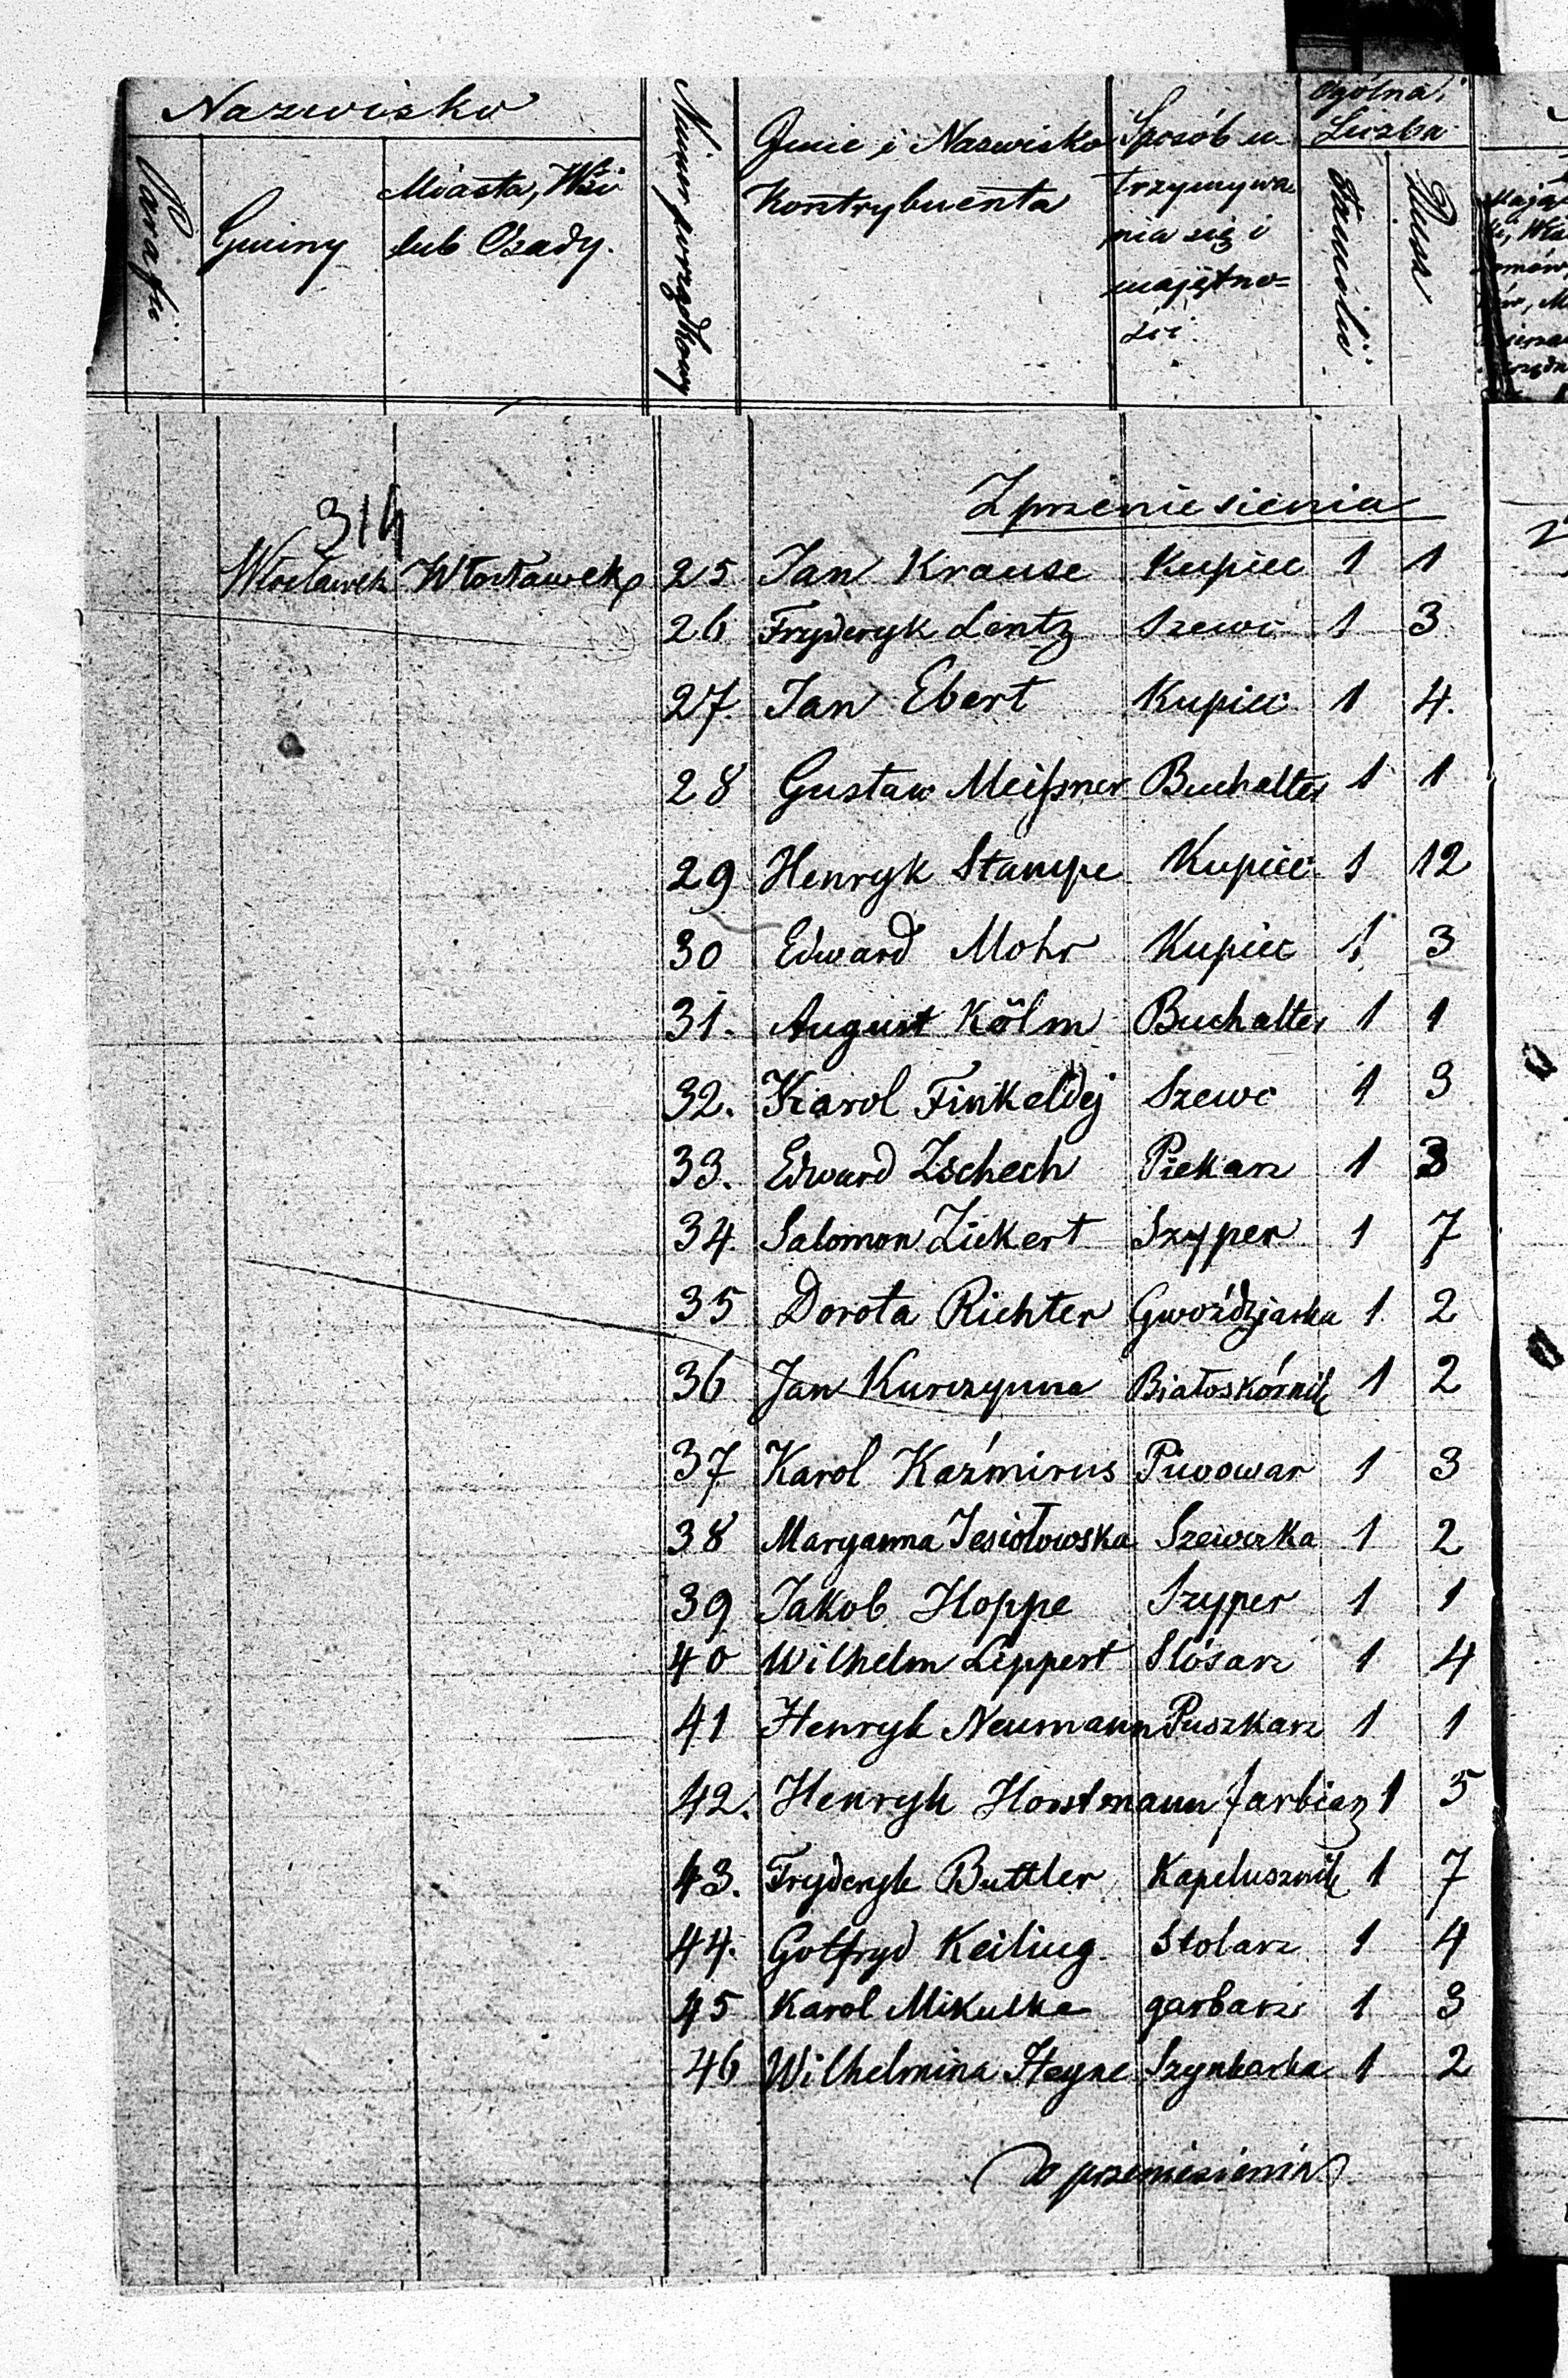 Nazwisko
Parafii
Gminy
Miasta, Wsi
lub Osady.
Numer porządkowy
Imie i Nazwisko
Kontrybuenta
Sposób u-
trzymywa
nia się i
majętno=
ści.
Ogólna
Liczba
Familii
Dusz
Z przeniesienia
314
Włocławek Włocławek 25 Jan Krause Kupiec 1 1
26 Fryderyk Lentz Szewc 1 3
27. Jan Ebert Kupiec 1 4.
28 Gustaw Meißner Buchalter 1 1
29 Henryk Stampe Kupiec 1 12
30 Edward Mohr Kupiec 1 3
31. August Kölm Buchalter 1 1
32. Karol Finkeldej Szewc 1 3
33. Edward Zschech Piekarz 1 3
34. Salomon Zickert Szyper 1 7
35 Dorota Richter Gwoździarka 1 2
36 Jan Kurczyna Białoskórnik 1 2
37 Karol Kaźmirus Piwowar 1 3
38 Maryanna Jesiołowska Szewczka 1 2
39 Jakob Hoppe Szyper 1 1
40 Wilhelm Lippert Slósarz 1 4
41 Henryk Neumann Puszkarz 1 1
42. Henryk Horstmann farbierz 1 5
43. Fryderyk Buttler Kapelusznik 1 7
44. Gotfryd Keiling Stolarz 1 4
45 Karol Mikulke garbarz 1 3
46 Wilhelmina Heyne Szynkarka 1 2
Do przeniesienia